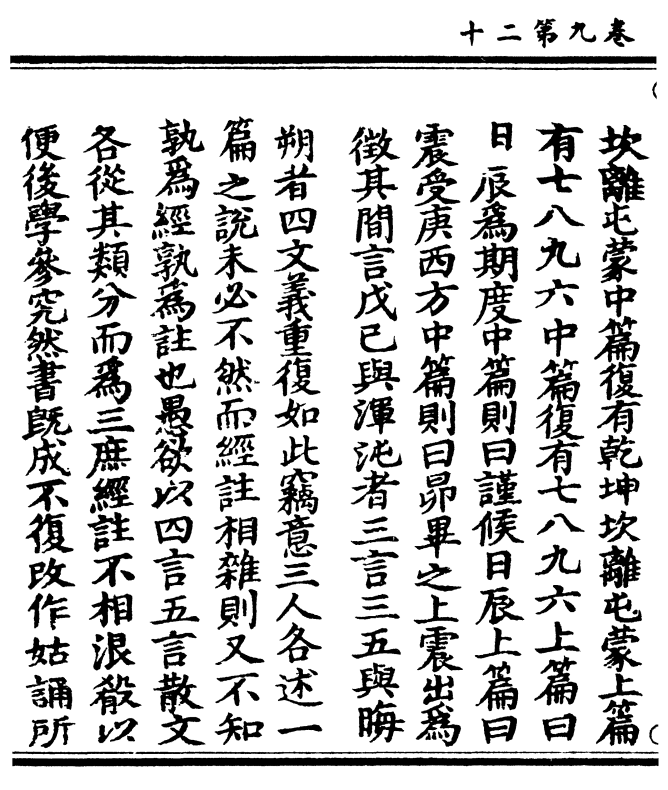 卷九第二十
坎離屯蒙中篇復有乾坤坎離屯蒙上篇
有七八九六中篇復有七八九六上篇曰
日辰爲期度中篇則曰謹候日辰上篇曰
震受庚西方中篇則曰昴畢之上震出爲
徵其間言戊己與渾沌者三言三五與晦
朔者四文義重復如此竊意三人各述一
篇之說未必不然而經註相雜則又不知
孰爲經孰爲註也愚欲以四言五言散文
各從其類分而爲三庶經註不相混殽以
便後學參究然書旣成不復改作姑誦所